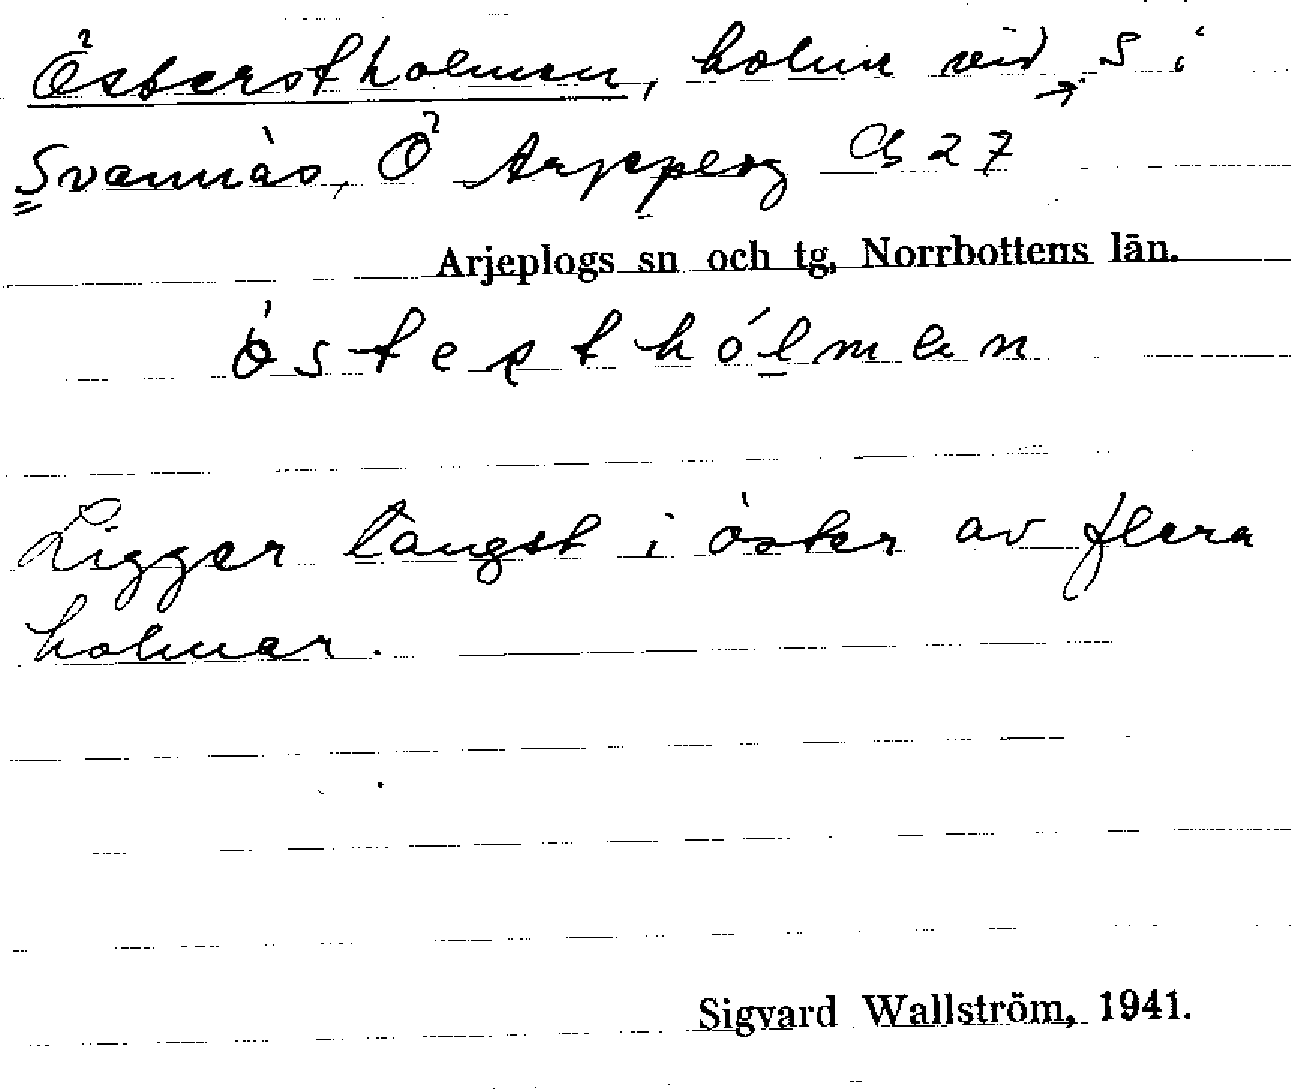 Österstholmen, holme vid → S i
Svannäs, Ö Arjeplog 27
Arjeplogs sn och tg, Norrbottens län.
östesthólmen
Ligger längst i öster av flera
holmar.
Sigvard Wallström, 1941.